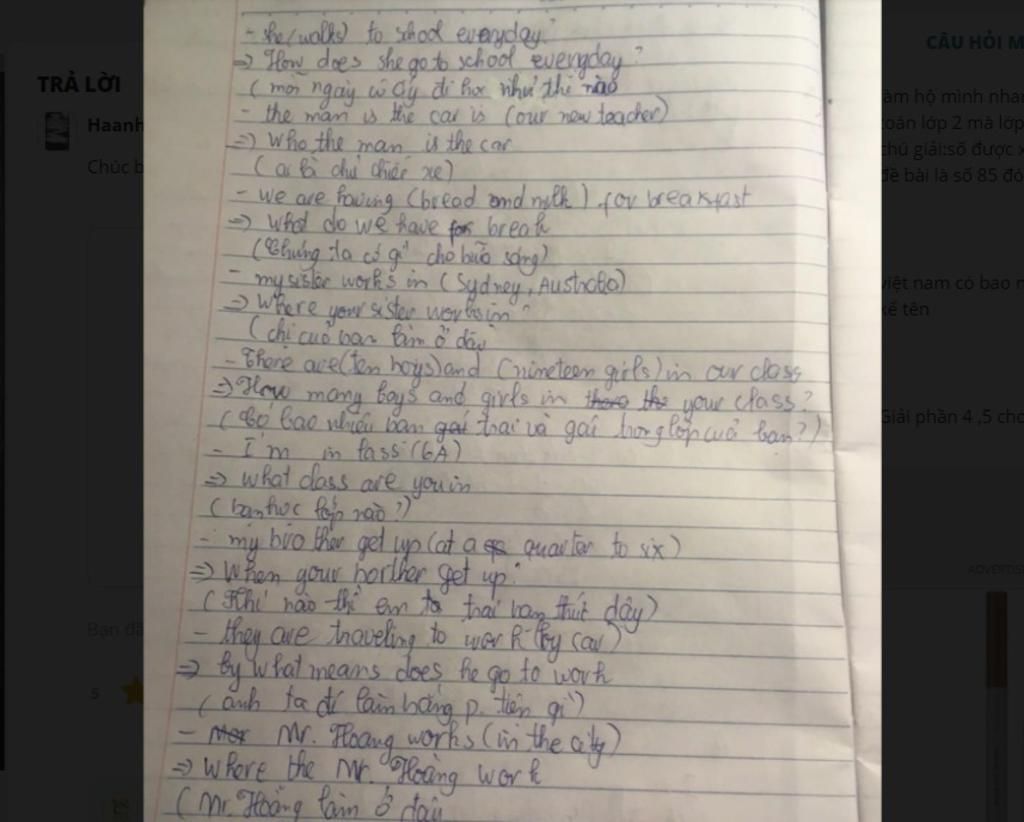 - she (walks) to school everyday?
=> How does she go to school everyday?
(mỗi ngày cô ấy đi học như thế nào
- the man is the car is (our new teacher)
=> Who the man is the car
(ai là chủ chiếc xe)
- we are having (bread and milk) for breakfast
=> What do we have for break
(Chúng ta có gì cho bữa sáng)
- my sister works in (Sydney, Australia)
=> Where your sister works in?
(chị của bạn làm ở đâu
- There are (ten boys) and (nineteen girls) in our class
=> How many boys and girls in your class?
(Có bao nhiêu bạn trai và gái trong lớp của bạn?)
- I'm in (6A)
=> what class are you in
(bạn học lớp nào?)
- my brother get up (at a quarter to six)
=> When your borther get up?
(Khi nào thì em trai bạn thức dậy)
- they are traveling to work (by car)
=> by what means does he go to work
(anh ta đi làm bằng p. tiện gì)
- Mr. Hoang works (in the city)
=> Where the Mr. Hoàng work
(Mr. Hoàng làm ở đâu
TRẢ LỜI
Haanh
Chúc b
Bạn đã
5
CÂU HỎI M
làm hộ mình nhan
toán lớp 2 mà lớp
chú giải:số được x
đề bài là số 85 đó
việt nam có bao n
kể tên
Giải phần 4 ,5 cho
ADVERTIS